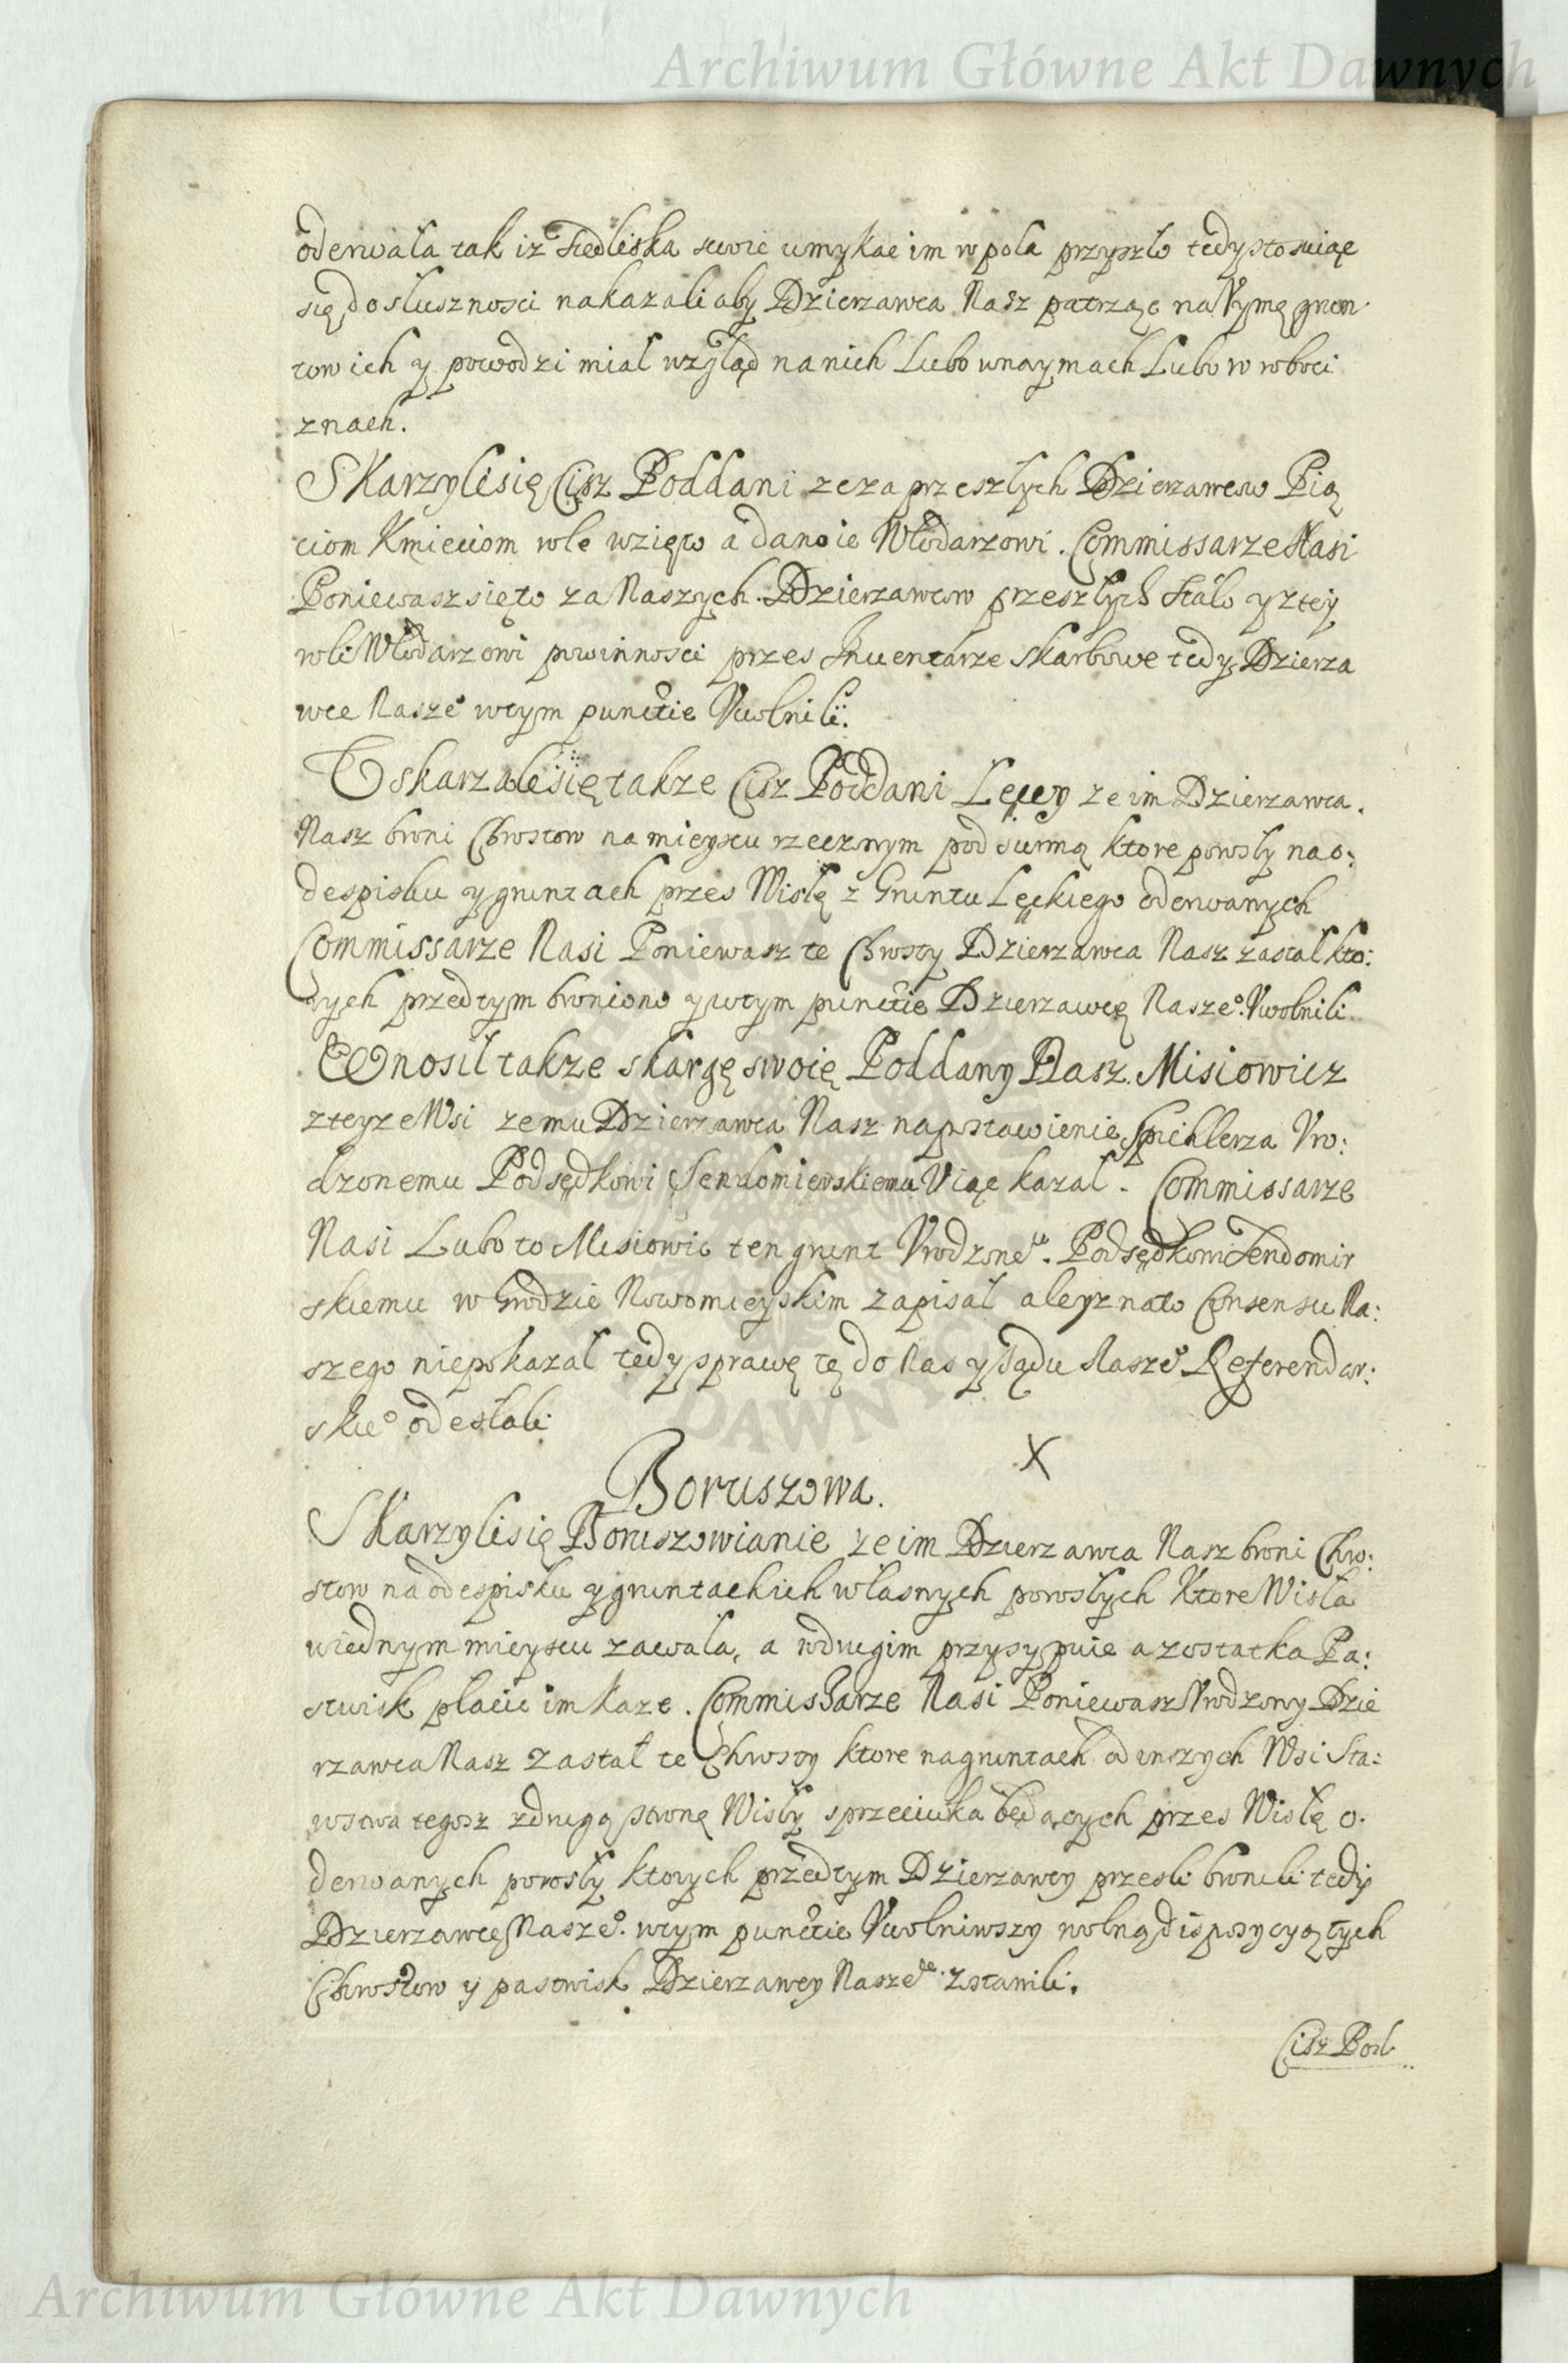 Archiwum Główne Akt Dawnych
oderwała tak iz Siedliska swoie umykac im w pola przyszło tedy stosuiąc
się do słusznosci nakazali aby Dzierzawca Nasz patrząc na Vymę grun
tow ich y powodzi miał wzgląd na nich Lubo w naymach Lubo w roboci
znach.
Skarzyli się Cisz Poddani ze za przeszłych Dzierzawcow Pią
ciom Kmieciom role wzięto a dano ie Włodarzowi. Commissarze Nasi
Poniewasz się to za Naszych Dzierzawcow przeszłych stało y z tey
roli Włodarzowi powinnosci przes Inuentarze skarbowe tedy Dzierza
wce Nasze° w tym punctie Vwolnili.
Vskarzali się takze Cisz Poddani Łęccy ze im Dzierzawca
Nasz broni Chrostow na mieyscu rzecznym pod summą ktore porosły na o:
despisku y gruntach przes Wisłę z Gruntu Łęckiego oderwanych
Commissarze Nasi Poniewasz te Chrosty Dzierzawca Nasz zastał kto:
rych przedtym broniono y w tym punctie Dzierzawcę Nasze°. Vwolnili.
Wnosił takze skargę swoię Poddany Nasz Misiowicz
z teyze Wsi ze mu Dzierzawca Nasz na postawienie Spichlerza Vro:
dzonemu Podsędkowi Sendomierskiemu Viąc kazał. Commissarze
Nasi Lubo to Misiowic ten grunt Vrodzone^u. Podsędkowi Sendomir
skiemu w Grodzie Nowomieyskim zapisał ale yz na to Consensu Na:
szego niepokazał tedy sprawę tę do Nas y Sądu Nasze° Referendar:
skie° odesłali
Boruszowa. X
Skarzyli się Boruszowianie ze im Dzierzawca Nasz broni Chro:
stow na odespisku y gruntach ich własnych porosłych Ktore Wisła
w iednym mieyscu zawala, a w drugim przysypuie a z ostatka Pa:
stwisk płacic im kaze. Commissarze Nasi Poniewasz Vrodzony Dzie
rzawca Nasz zastał te Chrosty ktore na gruntach od inszych Wsi Sta:
rostwa tegosz z drugą stronę Wisły sprzeciwka będących przes Wisłę o.
derwanych porosły ktorych przedtym Dzierzawcy przeszli bronili tedy
Dzierzawcę Nasze°. w tym punctie Vwolniwszy wolną dispozycyą tych
Chrostow y pastwisk Dzierzawcy Nasze^m zostawili.
Cisz Bor
Archiwum Główne Akt Dawnych